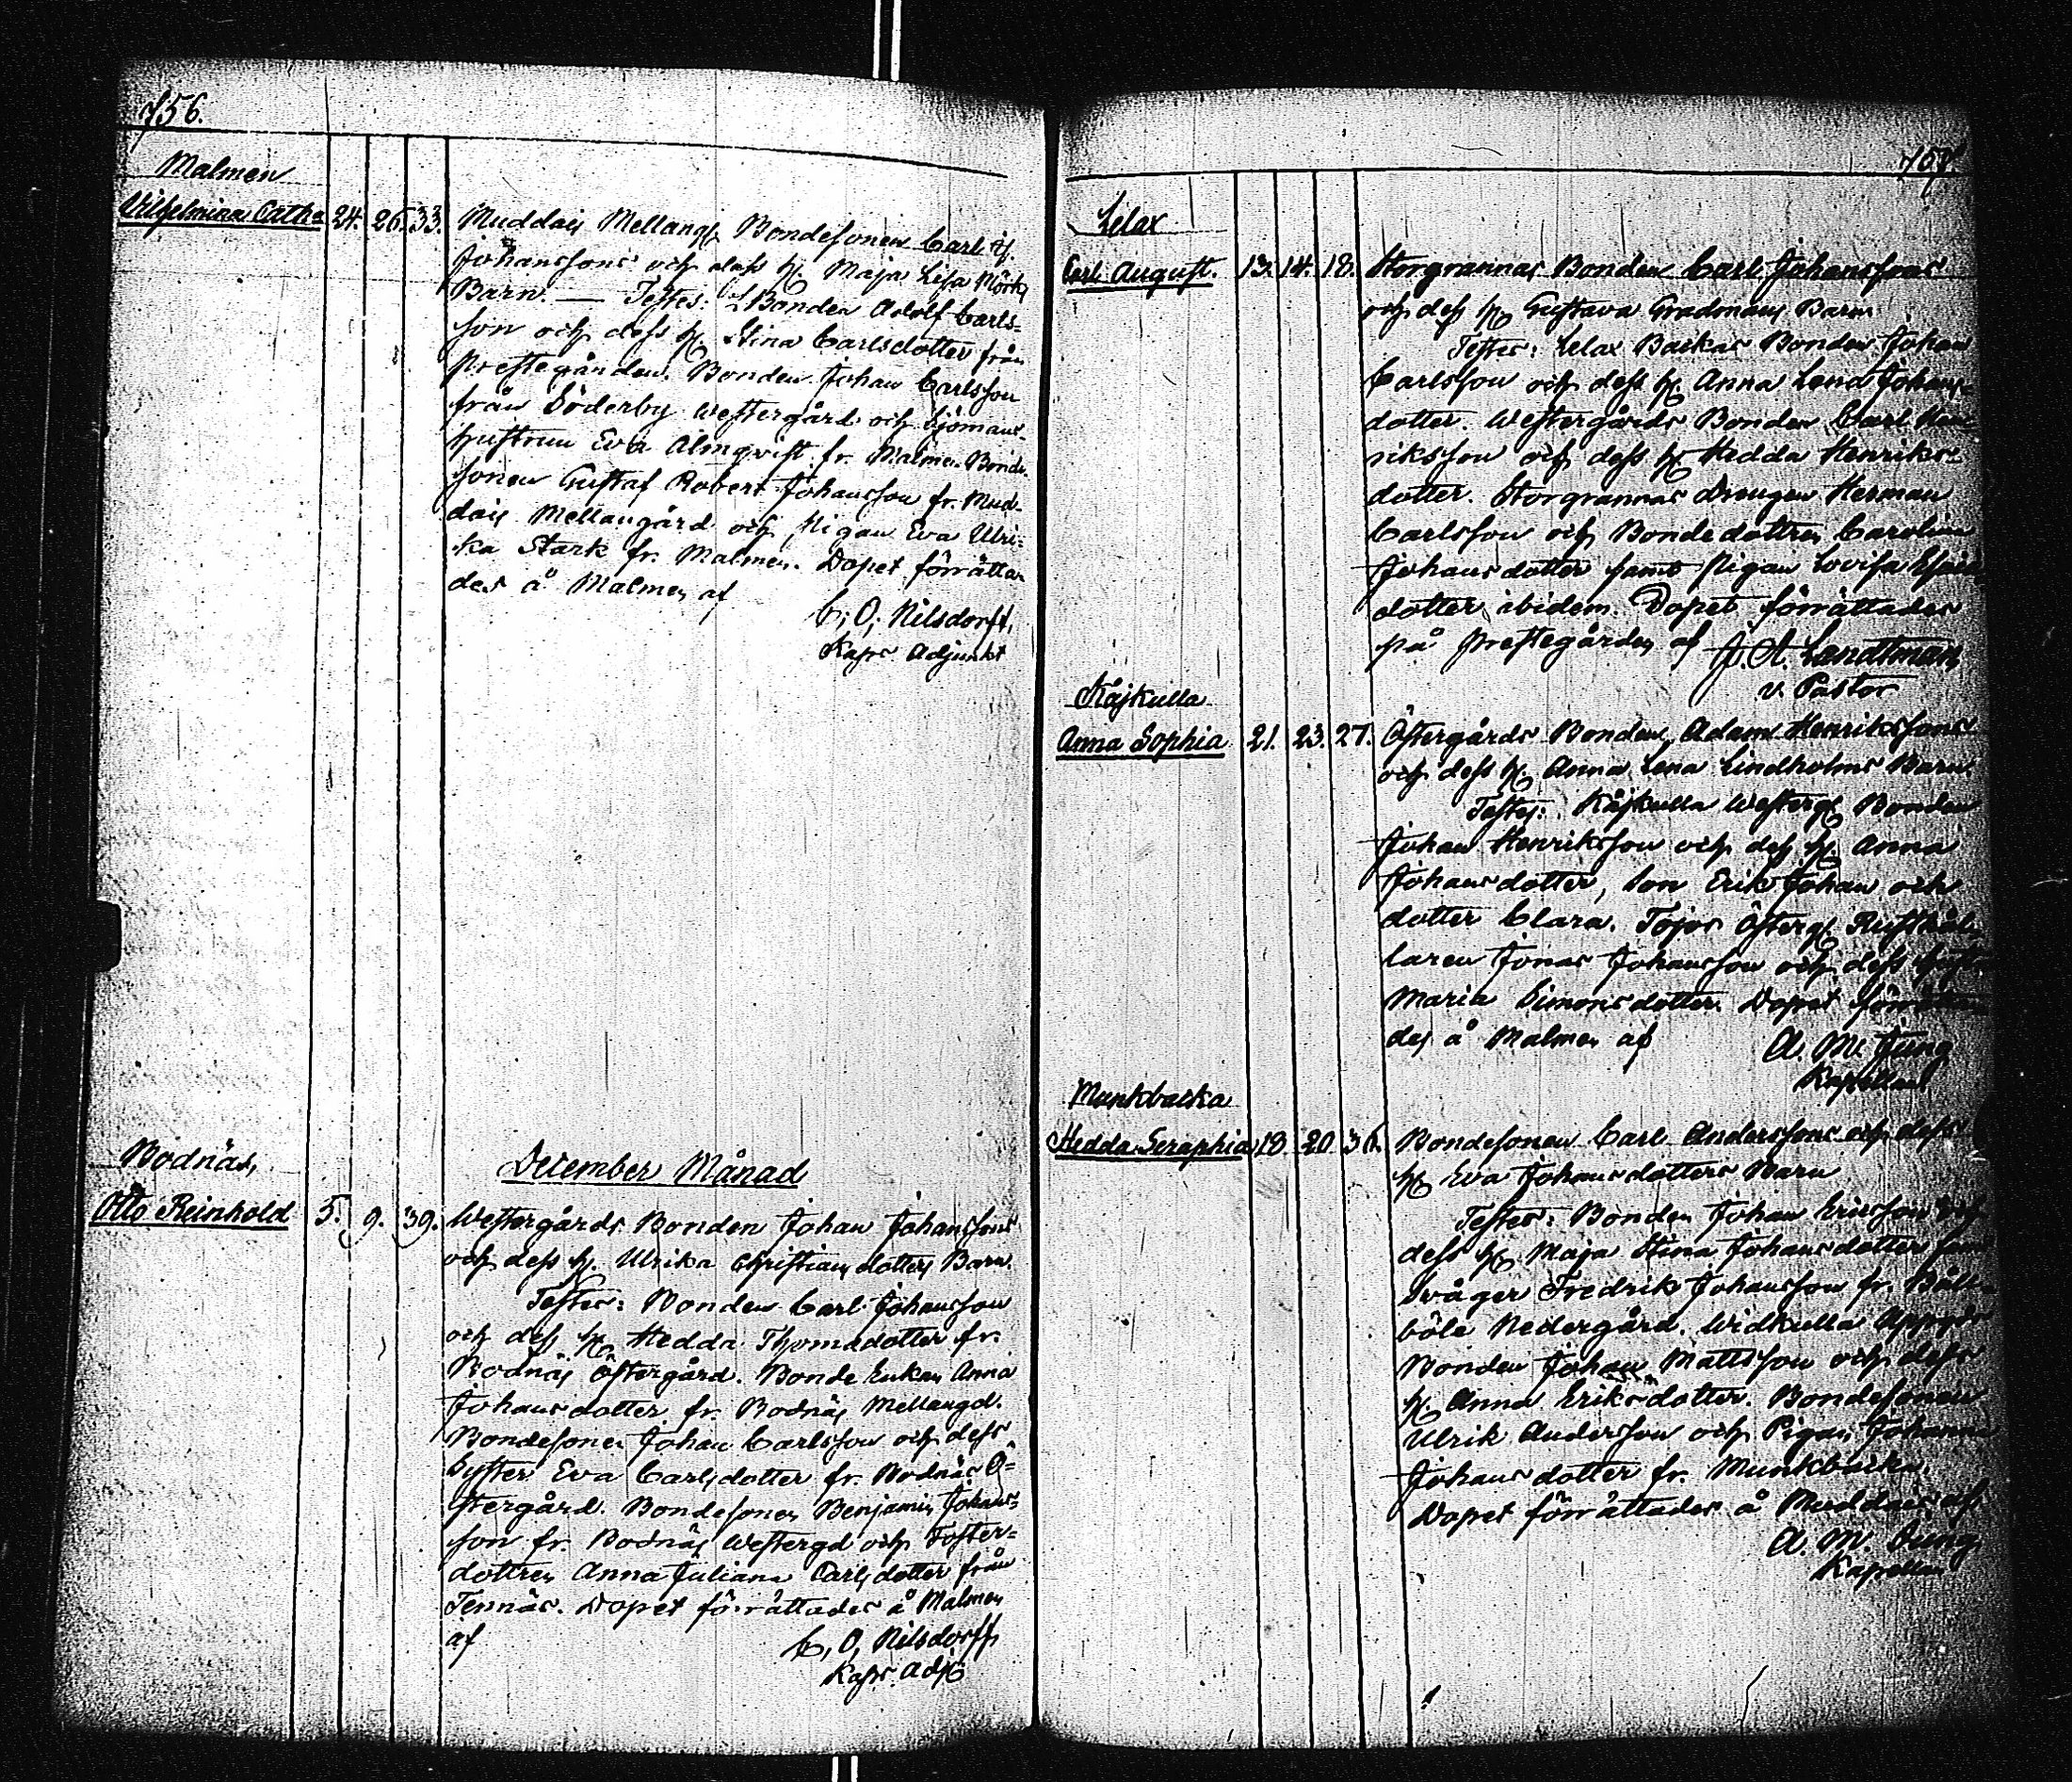 756.
Malmen
Vilhelmina Catha 24. 26. 33. Muddais Mellang. Bondesonen Carl G.
Johanssons och dess h. Maja Lisa Mörks
Barn. — Testes: Bonden Adolf Carls-
son och dess h. Stina Carlsdotter från
Prestegården. Bonden Johan Carlsson
från Söderby Westergård och Sjömans-
hustrun Eva Almqvist fr. Malmen. Bonde-
sonen Gustaf Robert Johansson fr. Mud-
dais Mellangård och Pigan Eva Ulri-
ka Stark fr. Malmen. Dopet förrätta-
des å Malmen af
C. O. Nilsdorff,
Kaps Adjunkt
December Månad
Bodnäs,
Otto Reinhold 5. 9. 39. Westergårds Bonden Johan Johanssons
och dess h. Ulrika Christiansdotters Barn.
Testes: Bonden Carl Johansson
och dess h. Hedda Thomadotter fr.
Bodnäs Östergård. Bonde Enkan Anna
Johansdotter fr. Bodnäs Mellangd.
Bondesonen Johan Carlsson och dess
Syster Eva Carlsdotter fr. Bodnäs Ö-
stergård. Bondesonen Benjamin Johans-
son fr. Bodnäs Westergd och Foster-
dottren Anna Juliana Carlsdotter från
Tennäs. Dopet förrättades å Malmen
af C. O. Nilsdorff
Kaps Adj.
757.
Lelax
Carl August. 13. 14. 18. Storgrannas Bonden Carl Johanssons
och dess h. Gustava Gradmans Barn.
Testes: Lelax Backas Bonden Johan
Carlsson och dess h. Anna Lena Johans-
dotter. Westergårds Bonden Carl Hen-
riksson och dess h. Hedda Henriks-
dotter. Storgrannas Drengen Herman
Carlsson och Bondedottren Carolina
Johansdotter samt Pigan Lovisa
dotter ibidem. Dopet förrättades
på Prestegården af J. A. Landtman
v. Pastor
Kåjkulla
Anna Sophia 21. 23. 27. Östergårds Bonden Adam Henrikssons
och dess h. Anna Lena Lindholms Barn.
Testes: Kåjkulla Westerg. Bonden
Johan Henriksson och dess h. Anna
Johansdotter, Son Erik Johan och
dotter Clara. Töjos Österg. Rusthål-
laren Jonas Johansson och dess
Maria Simonsdotter. Dopet
des å Malmen af A. M. Jung
Kapellan
Munkbacka
Hedda Seraphia 18. 20. 36. Bondesonen Carl Anderssons och dess
h. Eva Johansdotters Barn
Testes: Bonden Johan Ericsson och
dess h. Maja Stina Johansdotter samt
Svåger Fredrik Johansson fr.
böle Nedergård. Widkulla Uppgs
Bonden Johan Mattsson och dess
h. Anna Eriksdotter. Bondesonen
Ulrik Andersson och Pigan Johanna
Johansdotter fr. Munkbacka.
Dopet förrättades å Muddais af
A. M. Jung,
Kapellan